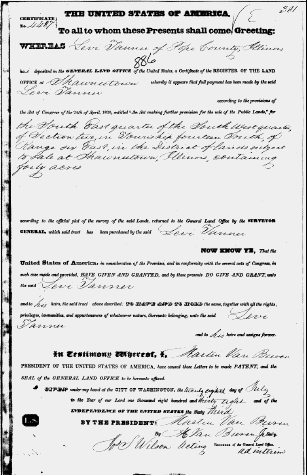 THE UNITED STATES OF AMERICA,
CERTIFICATE
To all to whom these Presents shall come, Greeting:
WHEREAS Levi Tanner of Pope County, Illinois
has deposited in the GENERAL LAND OFFICE of the United States, a Certificate of the REGISTER OF THE LAND
OFFICE at Shawneetown whereby it appears that full payment has been made by the said
Levi Tanner
according to the provisions
of the Act of Congress of the 24th of April, 1820, entitled "An Act making further provision for the sale of the Public Lands," for
the South East quarter of the South West quarter,
of Section six, in Township fourteen South, of
Range six East, in the District of lands subject
to Sale at Shawneetown, Illinois, containing
forty acres
according to the official plat of the survey of the said Lands, returned to the General Land Office by the SURVEYOR
GENERAL, which said tract has been purchased by the said Levi Tanner
NOW KNOW YE, That the
United States of America, in consideration of the Premises, and in conformity with the several acts of Congress, in
such case made and provided, HAVE GIVEN AND GRANTED, and by these presents DO GIVE AND GRANT, unto
the said Levi Tanner
and to his heirs, the said tract above described: TO HAVE AND TO HOLD the same, together with all the rights,
privileges, immunities, and appurtenances of whatsoever nature, thereunto belonging, unto the said Levi
Tanner
and to his heirs and assigns forever.
In Testimony Whereof, I, Martin Van Buren
PRESIDENT OF THE UNITED STATES OF AMERICA, have caused these Letters to be made PATENT, and the
SEAL of the GENERAL LAND OFFICE to be hereunto affixed.
GIVEN under my hand at the CITY OF WASHINGTON, the twenty eighth day of July
in the Year of our Lord one thousand eight hundred and thirty eight and of the
INDEPENDENCE OF THE UNITED STATES the Sixty third
BY THE PRESIDENT: Martin Van Buren
By
Jos. S. Wilson Acting RECORDER of the General Land Office
ad interim